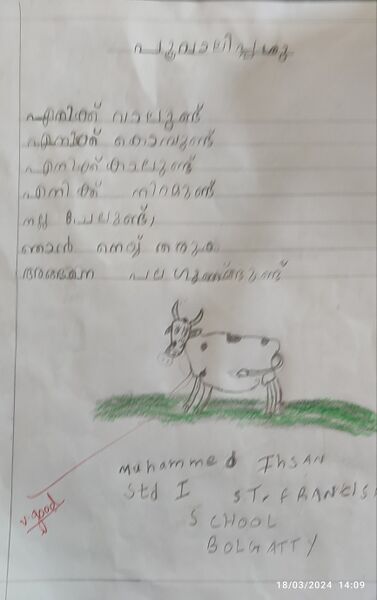 പൂവാലിപ്പശു
എനിക്ക് വാലുണ്ട്
എനിക്ക് കൊമ്പുണ്ട്
എനിക്ക് കാലുണ്ട്
എനിക്ക് നിറമുണ്ട്
നല്ല ചേലുണ്ട്,
ഞാൻ നെയ്യ് തരും
അങ്ങനെ പല ഗുണങ്ങളുണ്ട്
muhammed IhSAN
Std I ST. FRANCIS
SCHOOL
BOLGATTY
v. good
18/03/2024 14:09